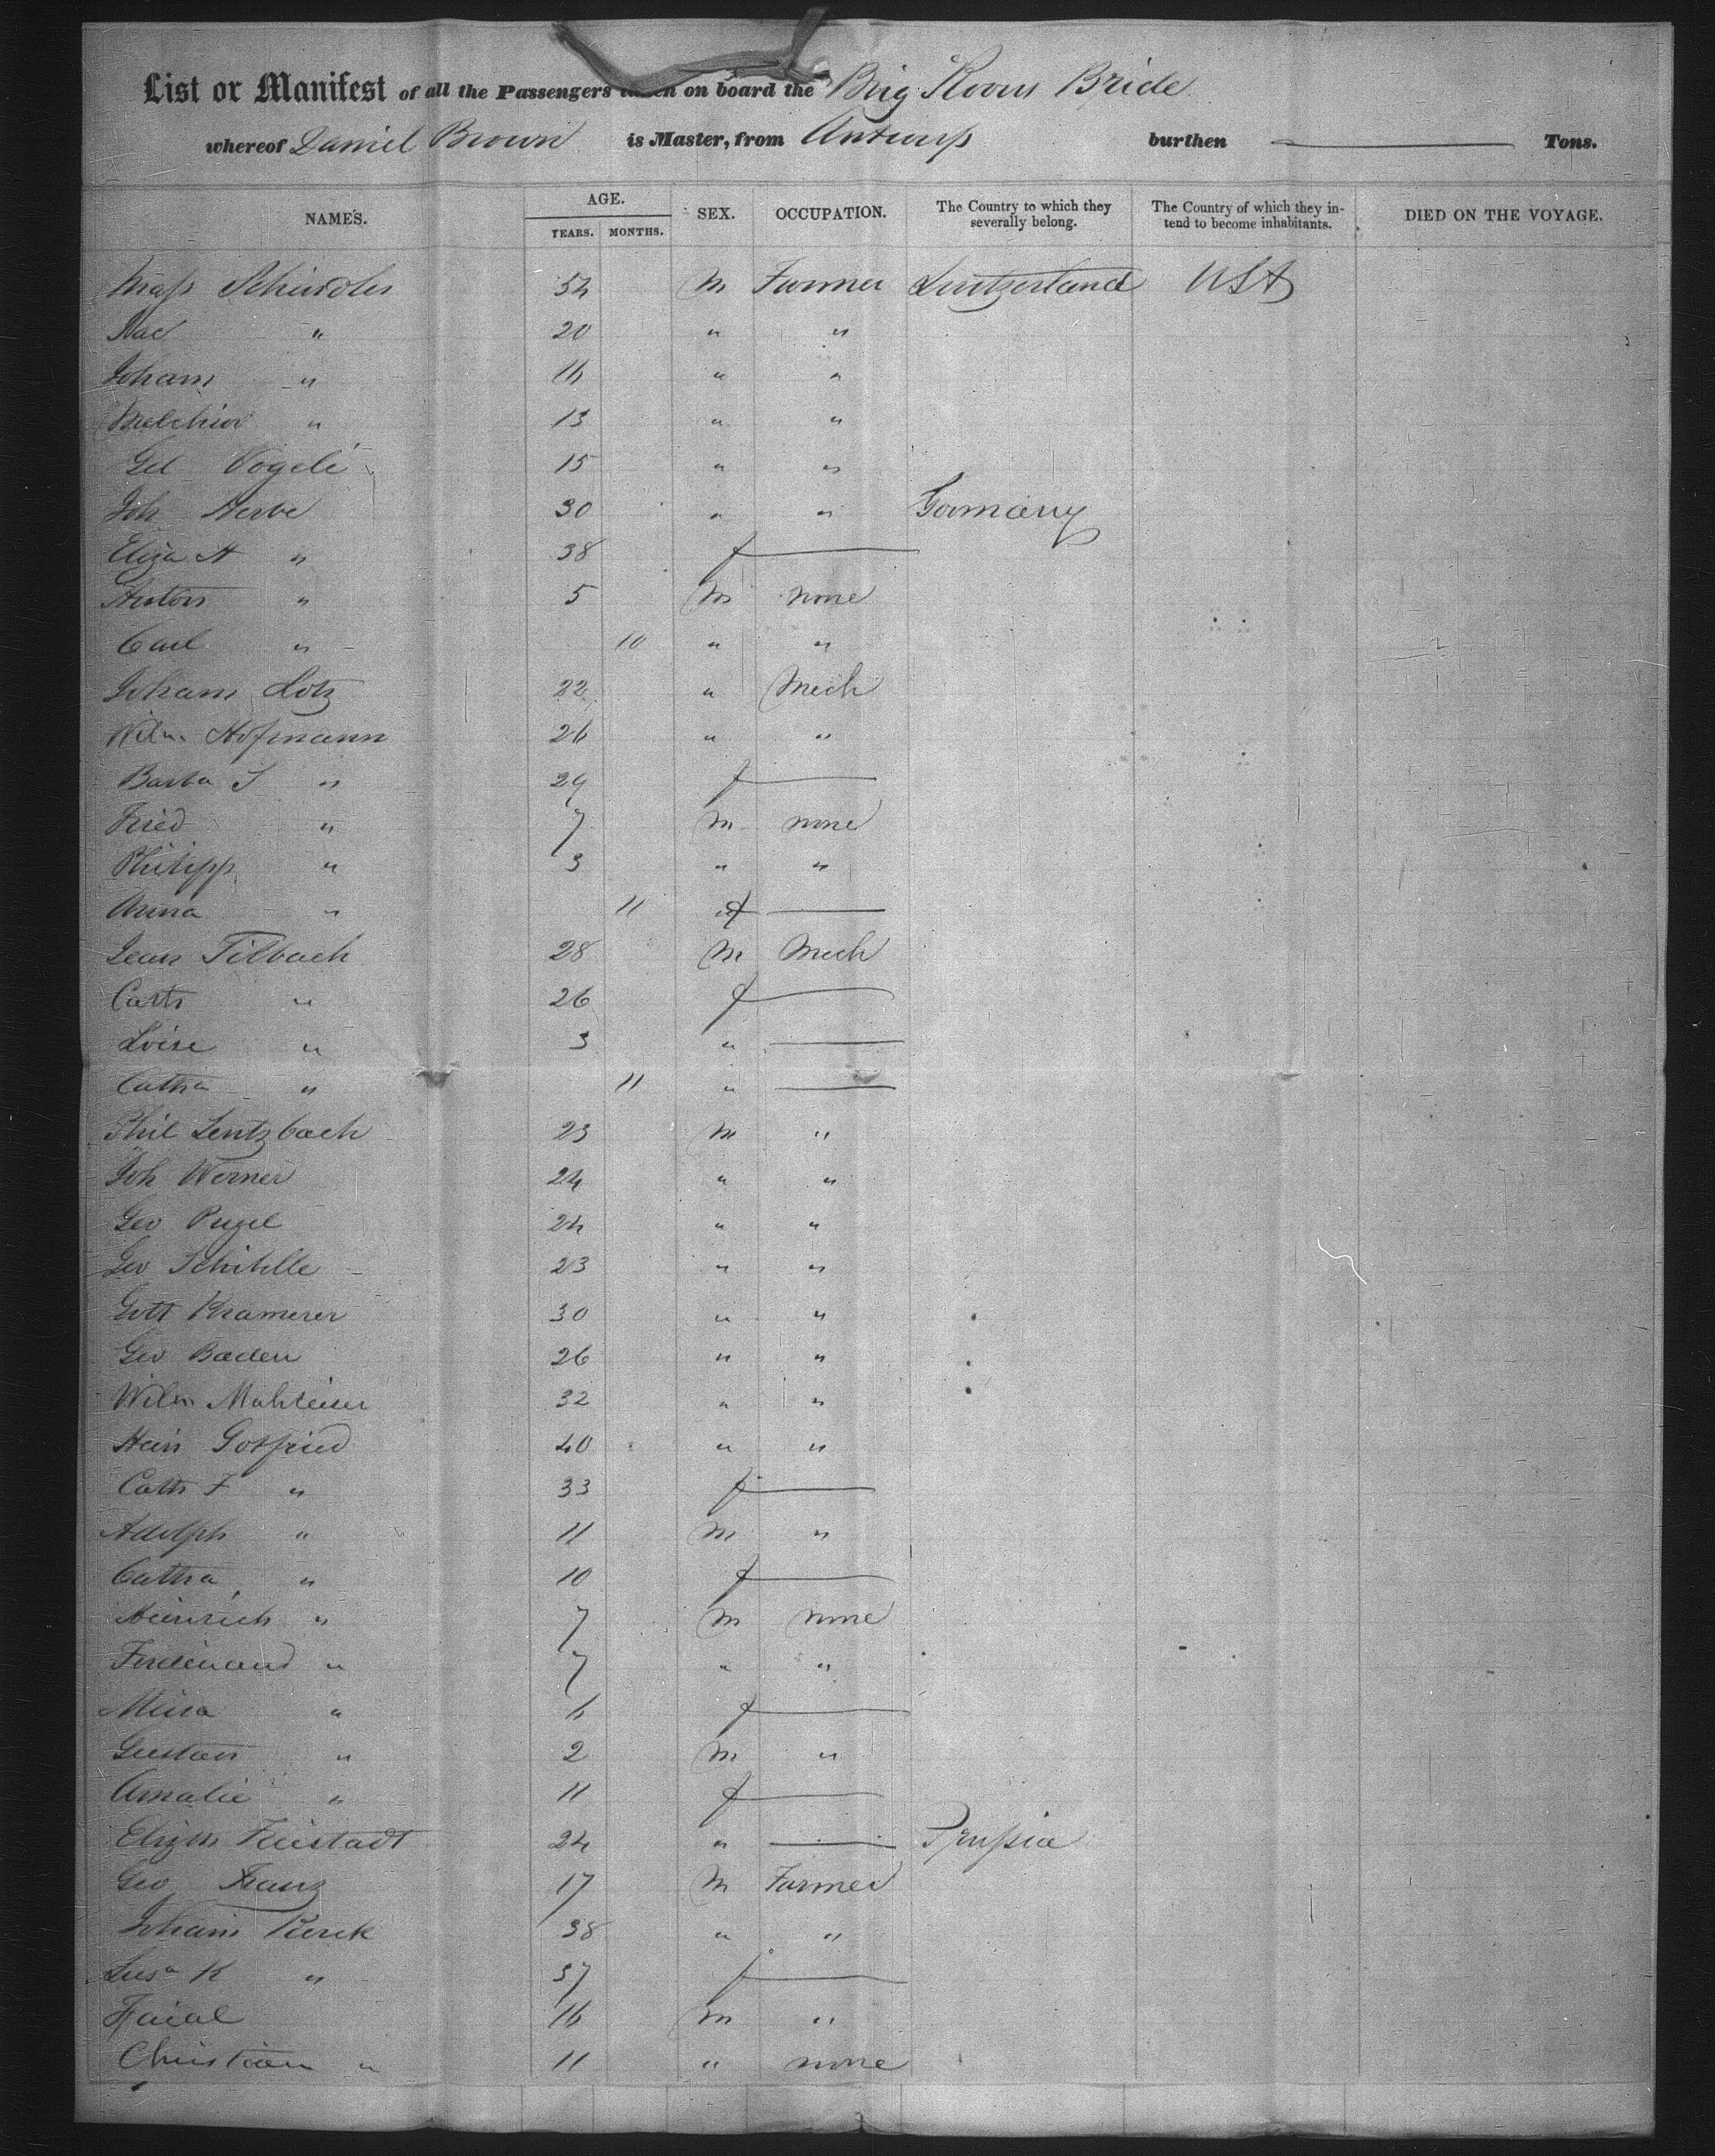 List or Manifest of all the Passengers taken on board the Brig Bride
whereof Daniel Brown is Master, from Antwerp burthen Tons.
NAMES. AGE. YEARS. MONTHS. SEX. OCCUPATION. The Country to which they severally belong. The Country of which they intend to become inhabitants. DIED ON THE VOYAGE.
54 M Farmer Switzerland USA
" 20 " "
Johann " 16 " "
Melchior " 13 " "
Vogele 15 " "
Joh Herbe 30 " " Germany
Eliza H " 38 f
Anton " 5 M none
Carl " 10 " "
Johann Lotz 22 " Mech
Wilm Hofmann 26 " "
Barba S " 29 f
Fried " 7 M none
Philipp " 3 " "
Anna " 11 f
Jean Tilbach 28 M Mech
" 26 f
Loise " 3 "
Catha " 11 "
Phil Lentzbach 23 M "
Joh Werner 24 " "
Geo 24 " "
Geo 23 " "
Gott Kramerer 30 " "
Geo Baden 26 " "
Wilm 32 " "
Hein Gotfried 40 " "
Cath F " 33 f
Adolph " 11 M "
Catha " 10 f
Heinrich " 7 M none
Ferdinand " 7 " "
Mina " 6 f
Gustav " 2 M "
Amalie " 11 f
24 " Prussia
Geo Franz 17 M Farmer
Johann 38 " "
K " 37 f
16 M "
Christian " 11 " none